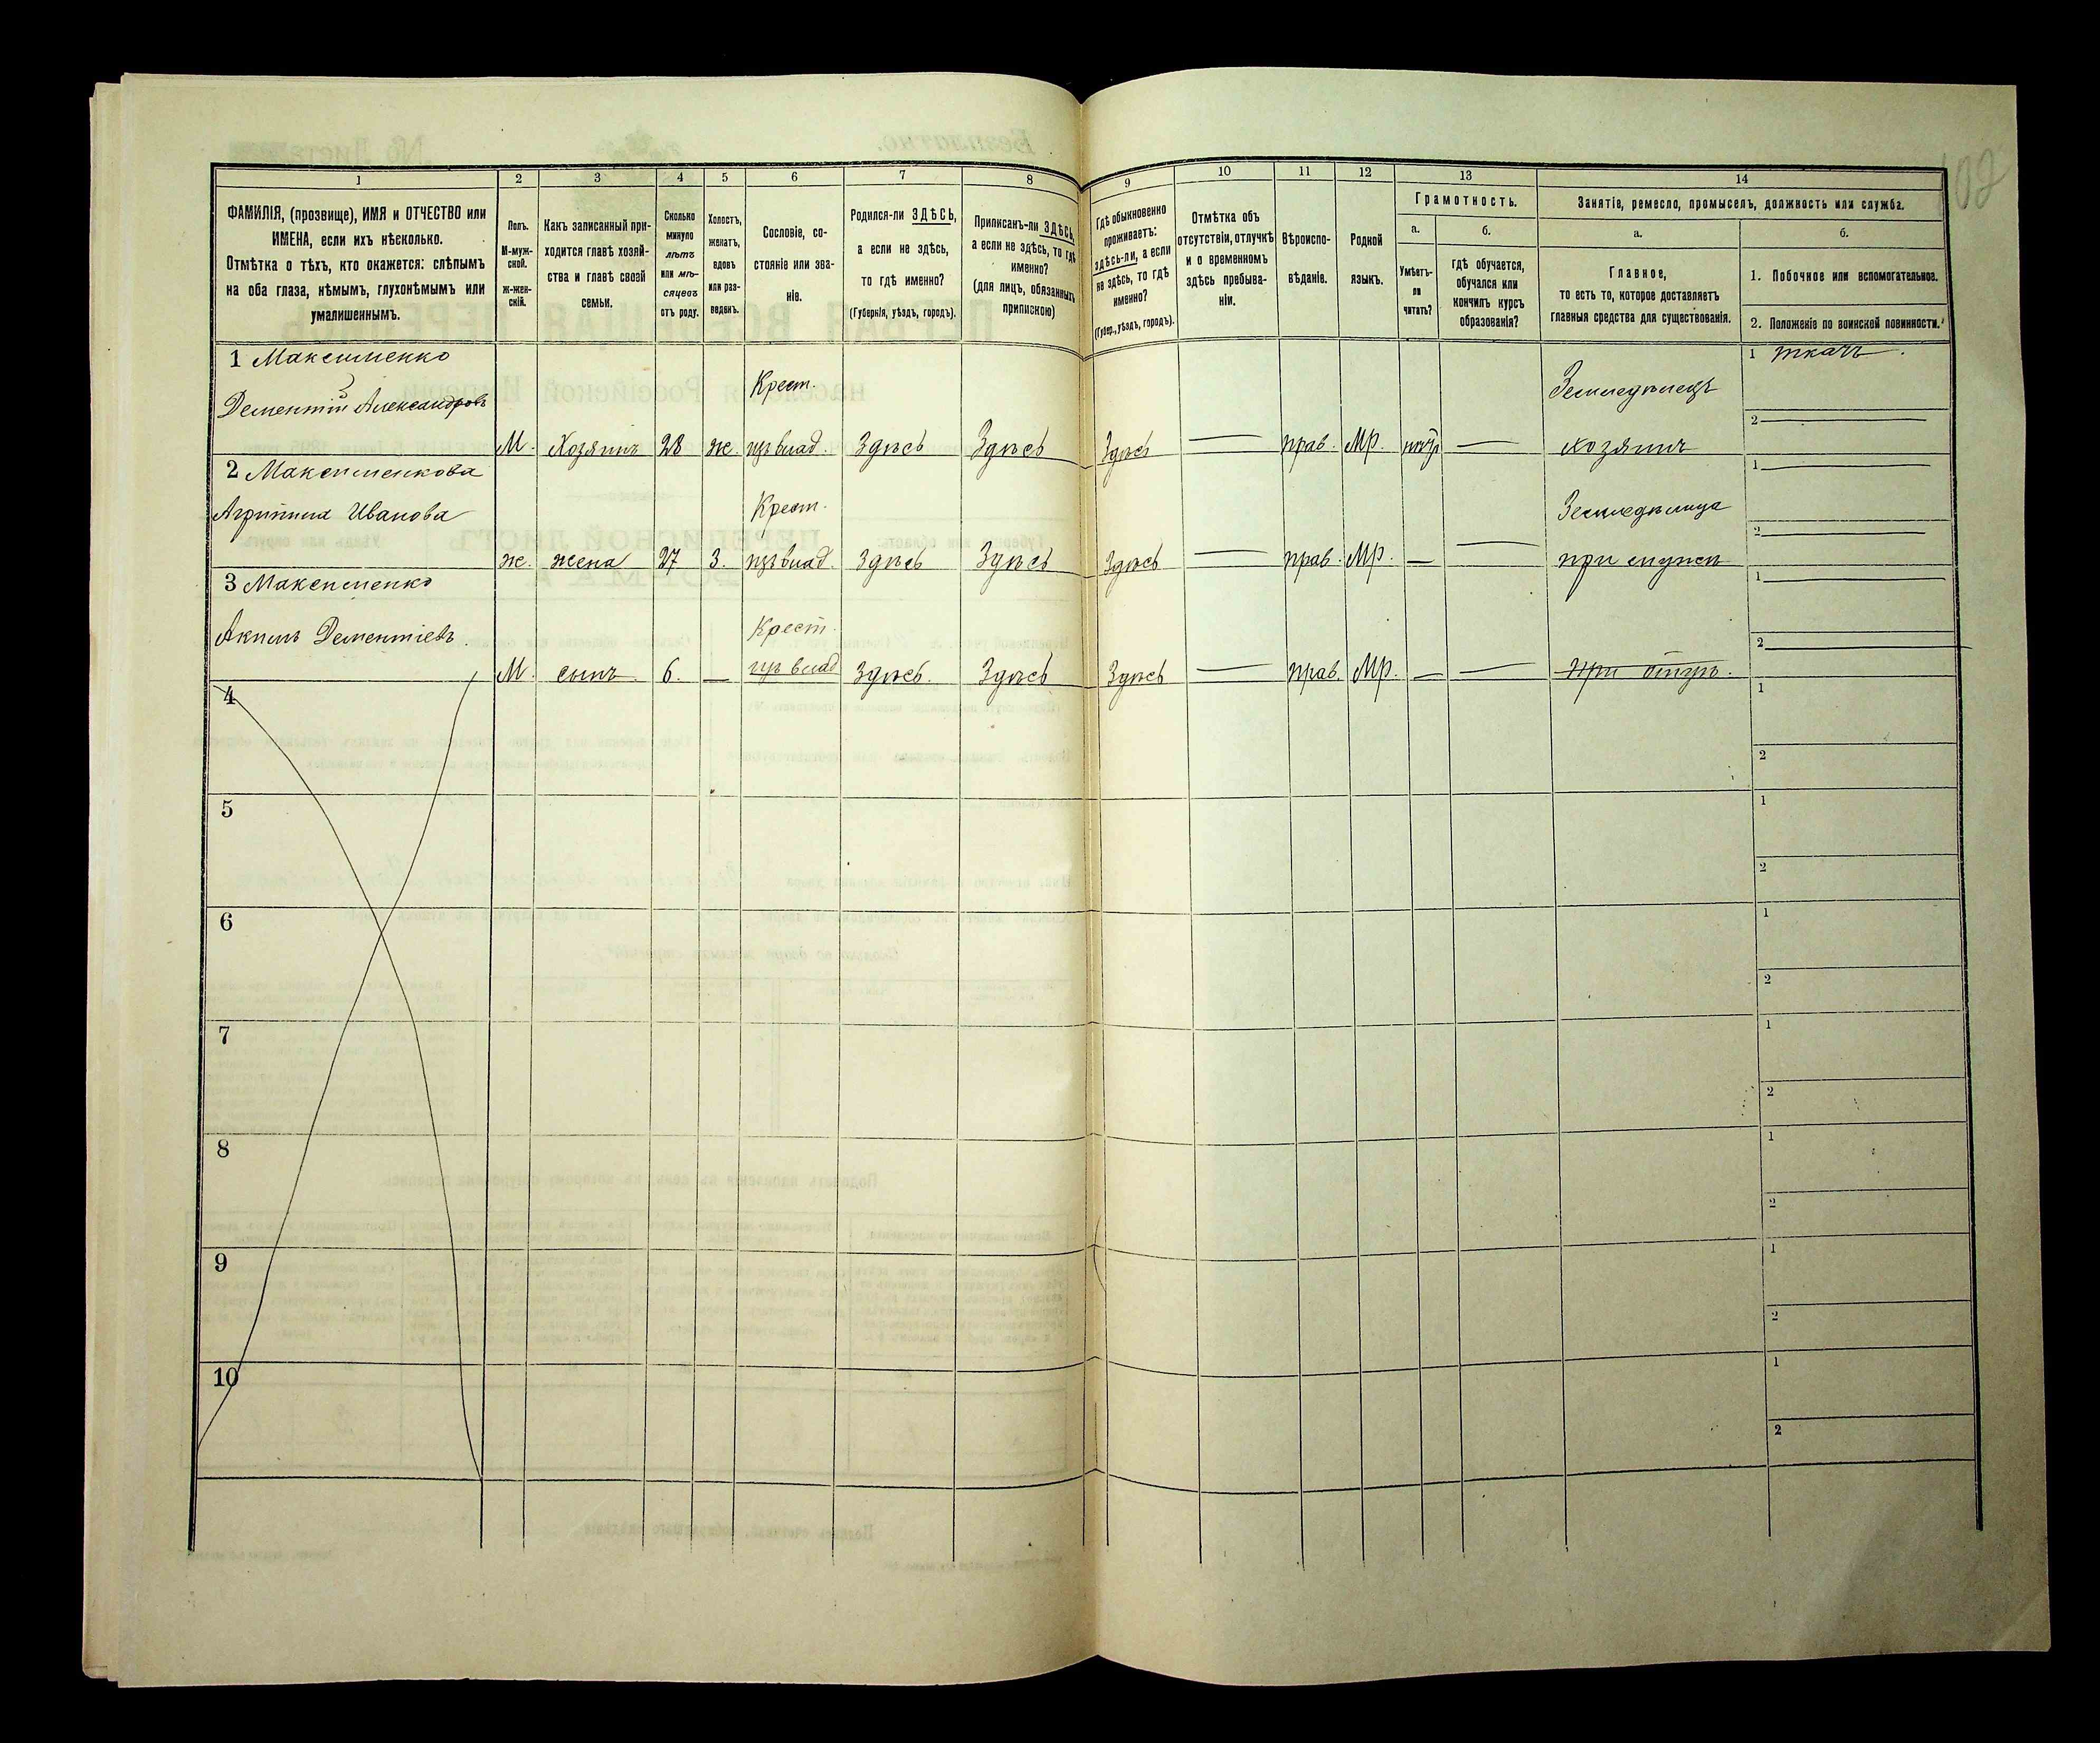 1 2 3 4 5 6 7 8 9 10 11 12 13 14
ФАМИЛІЯ, (прозвище), ИМЯ и ОТЧЕСТВО или
ИМЕНА, если ихъ нѣсколько.
Отмѣтка о тѣхъ, кто окажется: слѣпымъ
на оба глаза, нѣмымъ, глухонѣмымъ или
умалишеннымъ.
Полъ.
М-муж-
ской.
Ж-жен-
скій.
Какъ записанный при-
ходится главѣ хозяй-
ства и главѣ своей
семьи.
Сколько
минуло
лѣтъ
или мѣ-
сяцевъ
отъ роду.
Холостъ,
женатъ,
вдовъ
или раз-
веденъ.
Сословіе, со-
стояніе или зва-
ніе.
Родился-ли ЗДѢСЬ,
а если не здѣсь,
то гдѣ именно?
(Губернія, уѣздъ, городъ).
Приписанъ-ли ЗДѢСЬ,
а если не здѣсь, то гдѣ
именно?
(для лицъ, обязанныхъ
припискою)
Гдѣ обыкновенно
проживаетъ:
здѣсь-ли, а если
не здѣсь, то гдѣ
именно?
(Губер., уѣздъ, городъ).
Отмѣтка объ
отсутствіи, отлучкѣ
и о временномъ
здѣсь пребыва-
ніи.
Вѣроиспо-
вѣданіе.
Родной
языкъ.
Грамотность.
а.
Умѣетъ-
ли
читать?
б.
гдѣ обучается,
обучался или
кончилъ курсъ
образованія?
Занятіе, ремесло, промыселъ, должность или служба.
а.
Главное,
то есть то, которое доставляетъ
главныя средства для существованія.
б.
1. Побочное или вспомогательное.
2. Положеніе по воинской повинности.
1 Максименко Крест. Земледѣлецъ 1 ткачъ.
Дементій Александровъ 2
М. Хозяинъ 28 ж. изъ влад. Здѣсь Здѣсь Здѣсь — прав. Мр. — хозяинъ
2 Максименкова Крест. Земледѣлица 1
Агрипина Иванова 2
ж. жена 27 З. изъ влад. Здѣсь Здѣсь Здѣсь — прав. Мр. — — при мужѣ
3 Максименко Крест. 1
Акимъ Дементіевъ. 2
М. сынъ. 6. — изъ влад Здѣсь. Здѣсь Здѣсь — прав. Мр. — — при отцѣ.
4 1
2
5 1
2
6 1
2
7 1
2
8 1
2
9 1
2
10 1
2